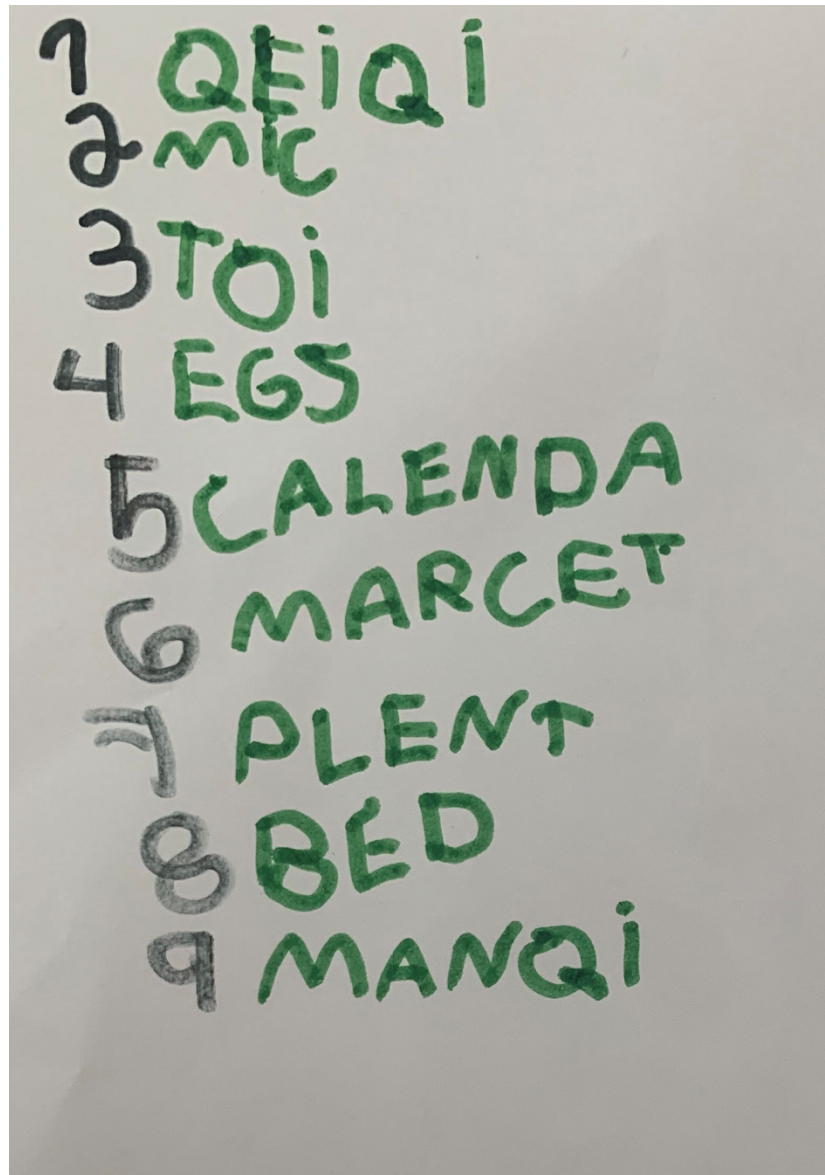 1 QEiQi
2 MiC
3 TOi
4 EGS
5 CALENDA
6 MARCET
7 PLENT
8 BED
9 MANQi